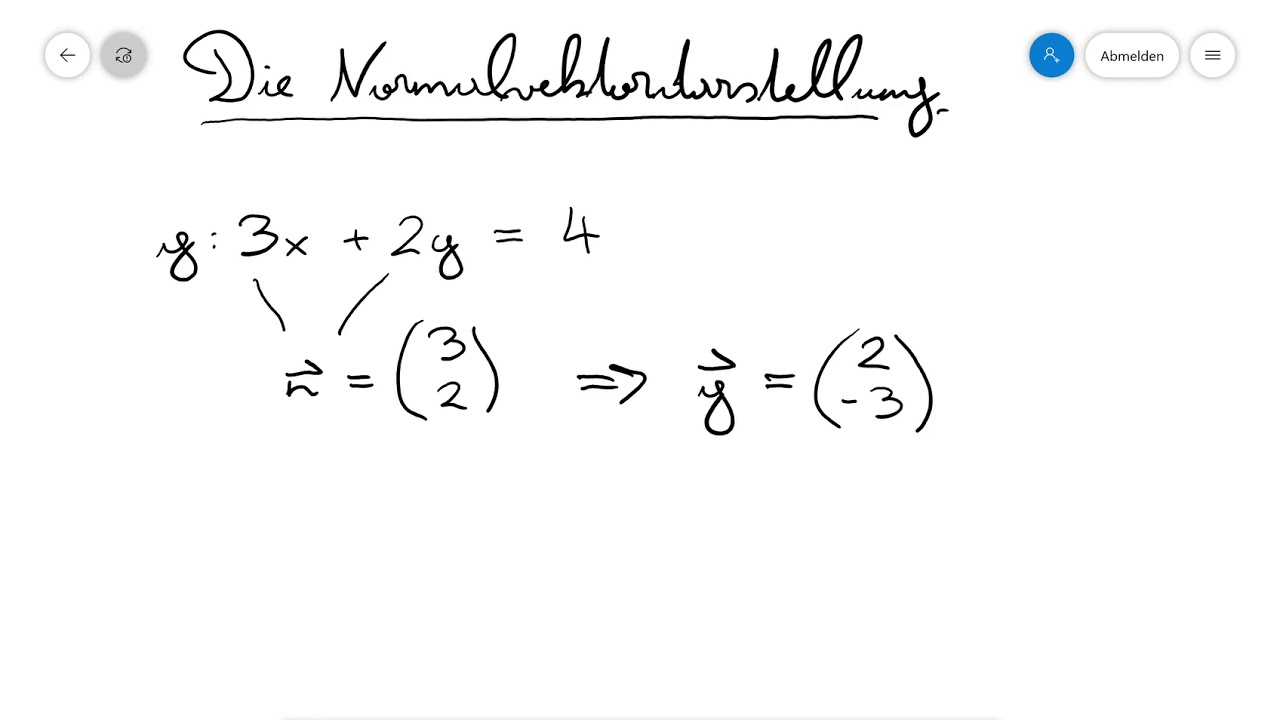 Abmelden
Die Normalvektordarstellung.
g: 3x + 2y = 4
n⃗ = (3 2) => g⃗ = (2 -3)